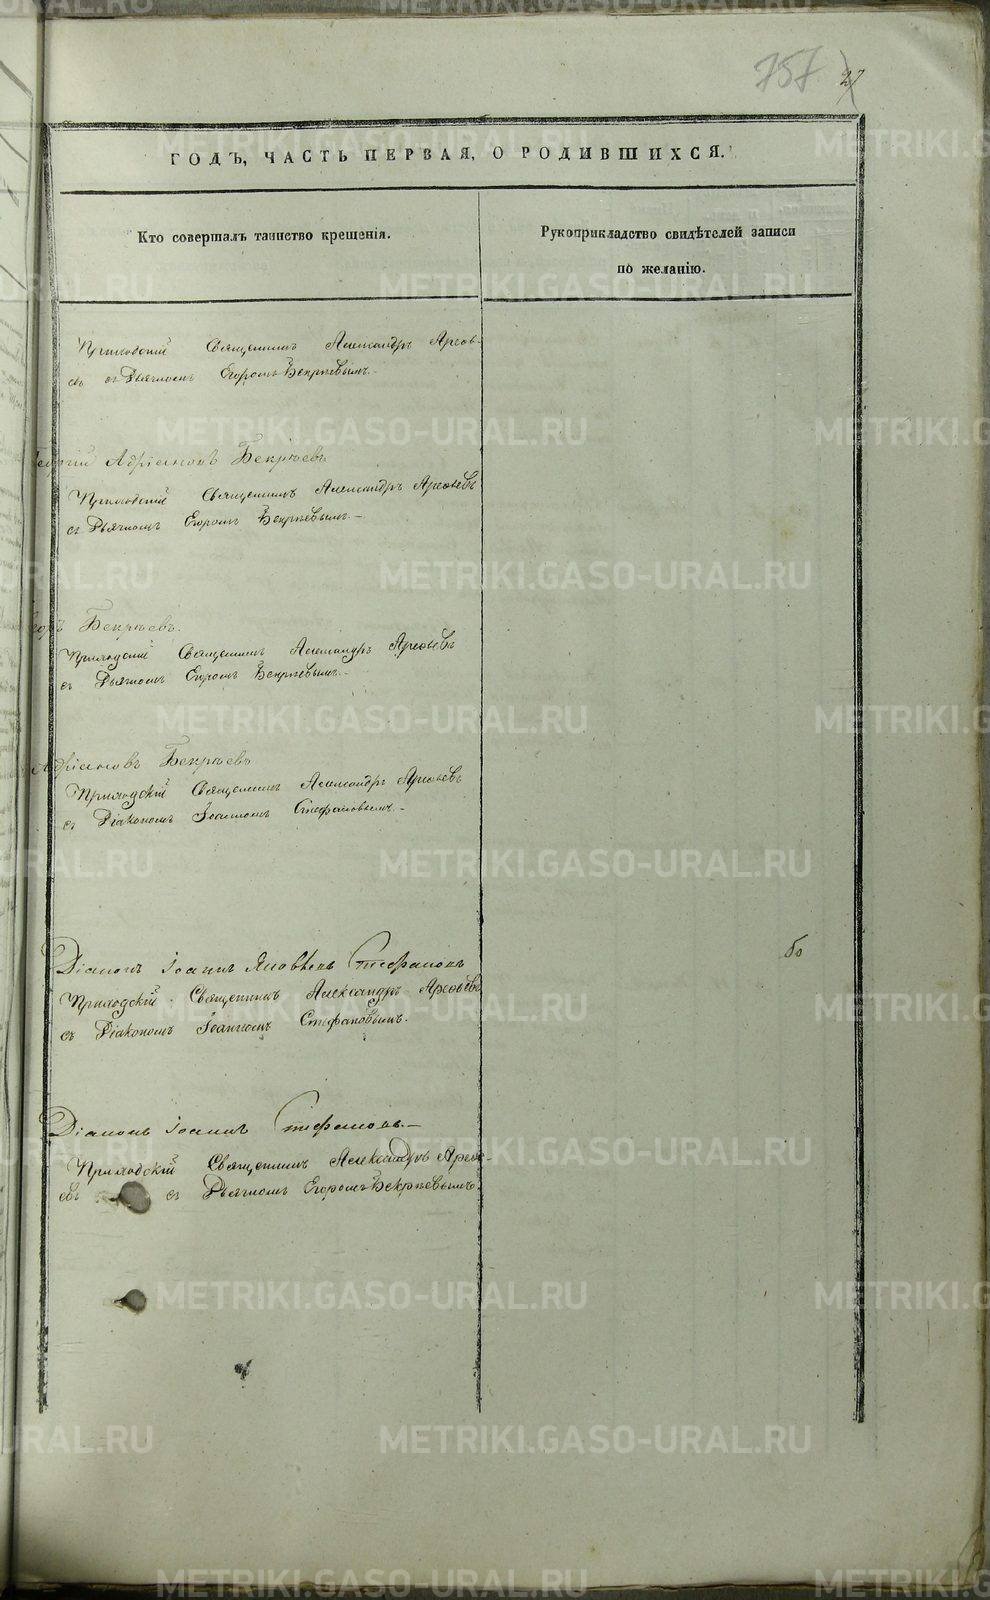 757 27
ГОДЪ, ЧАСТЬ ПЕРВАЯ, О РОДИВШИХСЯ.
Кто совершалъ таинство крещенія.
Рукоприкладство свидѣтелей записи
по желанію.
Приходскій Священникъ Александръ
съ Дьячкомъ Егоромъ Бекрѣевымъ.
Адріановъ Бекрѣевъ
Приходскій Священникъ Александръ
съ Дьячкомъ Егоромъ Бекрѣевымъ.
Бекрѣевъ.
Приходскій Священникъ Александръ
съ Дьячкомъ Егоромъ Бекрѣевымъ.
Адріановъ Бекрѣевъ
Приходскій Священникъ Александръ
съ Діакономъ Іоанномъ Стефановымъ.
Діаконъ Іоаннъ Яковлевъ Стефановъ
Приходскій Священникъ Александръ
съ Діакономъ Іоанномъ Стефановымъ.
Діаконъ Іоаннъ Стефановъ.
Приходскій Священникъ Александръ
съ Дьячкомъ Егоромъ Бекрѣевымъ.
METRIKI.GASO-URAL.RU